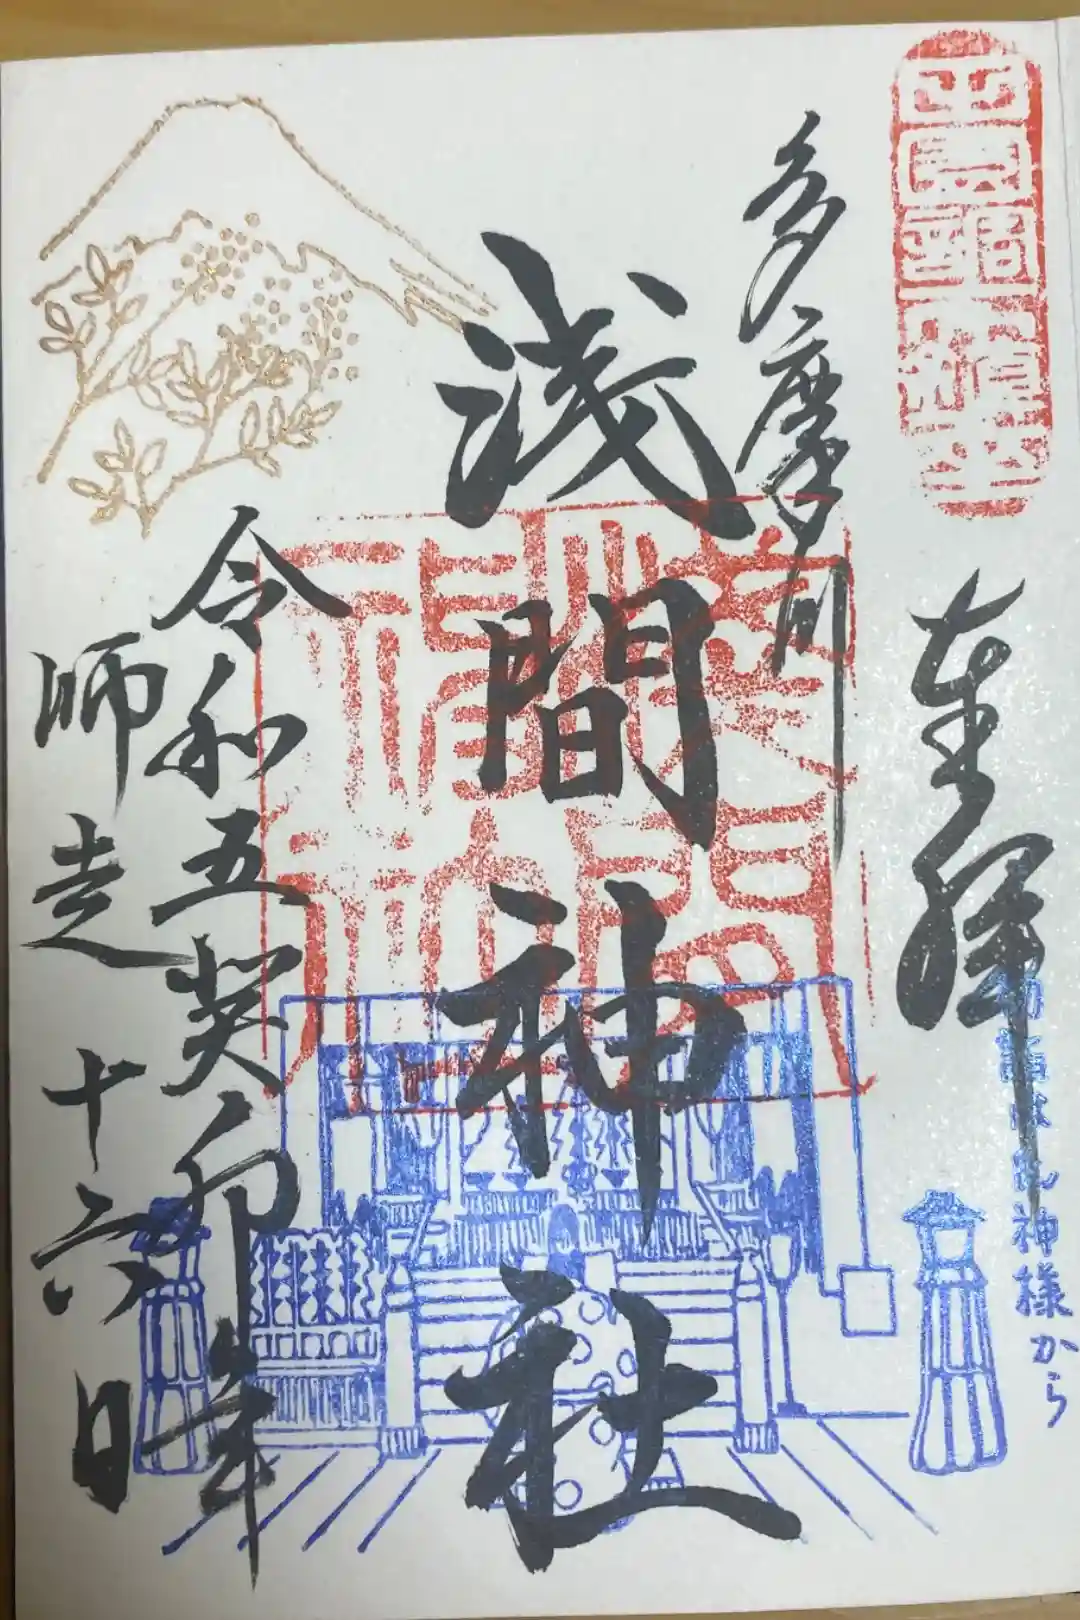 奉拝
初詣は氏神様から
多摩川
浅間神社
令和五癸卯年
師走十六日